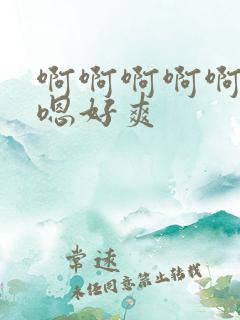 啊啊啊啊啊
嗯好爽
常速
未经同意禁止转载